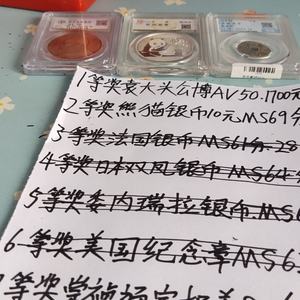 1等奖袁大头公博AV50.1700元
2等奖熊猫银币10元MS69分
3等奖法国银币MS61分.28
4等奖日本双凤银币MS64
5等奖委内瑞拉银币MS6
6等奖美国纪念章MS6